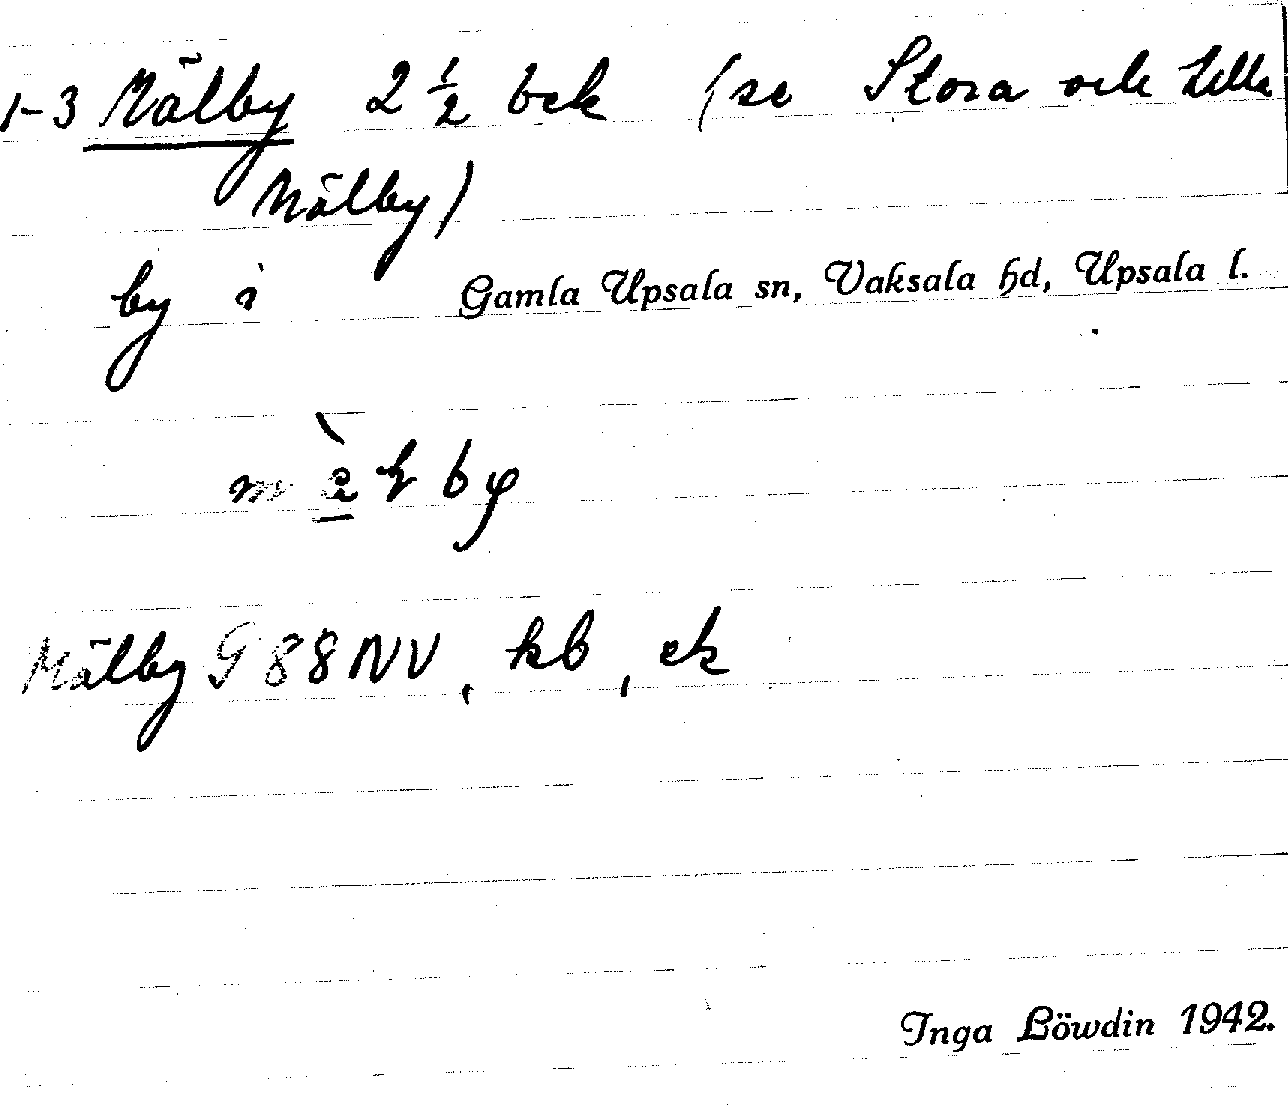 1-3 Mälby 2 ½ bek (se Stora och Lilla
Mälby)
by i Gamla Upsala sn, Vaksala hd, Upsala l.
Mälby G 88 NV, kb, ek
Inga Löwdin 1942.